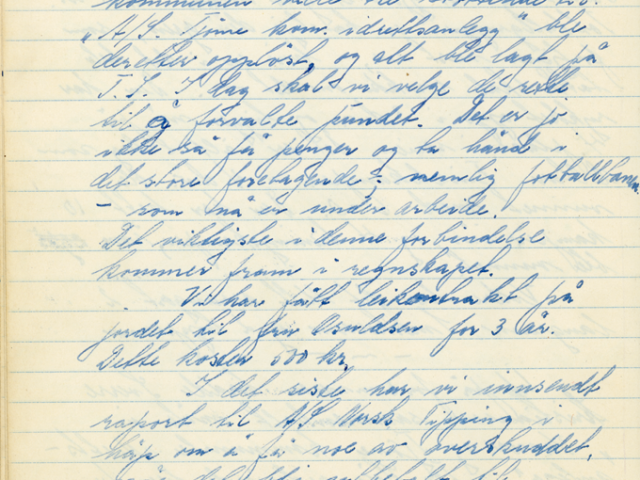 kommunen ville
„A/S. Tjøme kom. idrettsanlegg" ble
deretter oppløst, og alt ble lagt på
T.I. I dag skal vi velge de rette
til å forvalte pundet. Det er jo
ikke så få penger og ta hånd i
det store foretagende, nemlig fotballbanen
- som nå er under arbeide.
Det viktigste i denne forbindelse
kommer fram i regnskapet.
Vi har fått leiekontrakt på
jordet til fru Osuldsen for 3 år.
Dette koster 500 kr.
I det siste har vi innsendt
raport til A/S Norsk Tipping i
håp om å få noe av overskuddet,